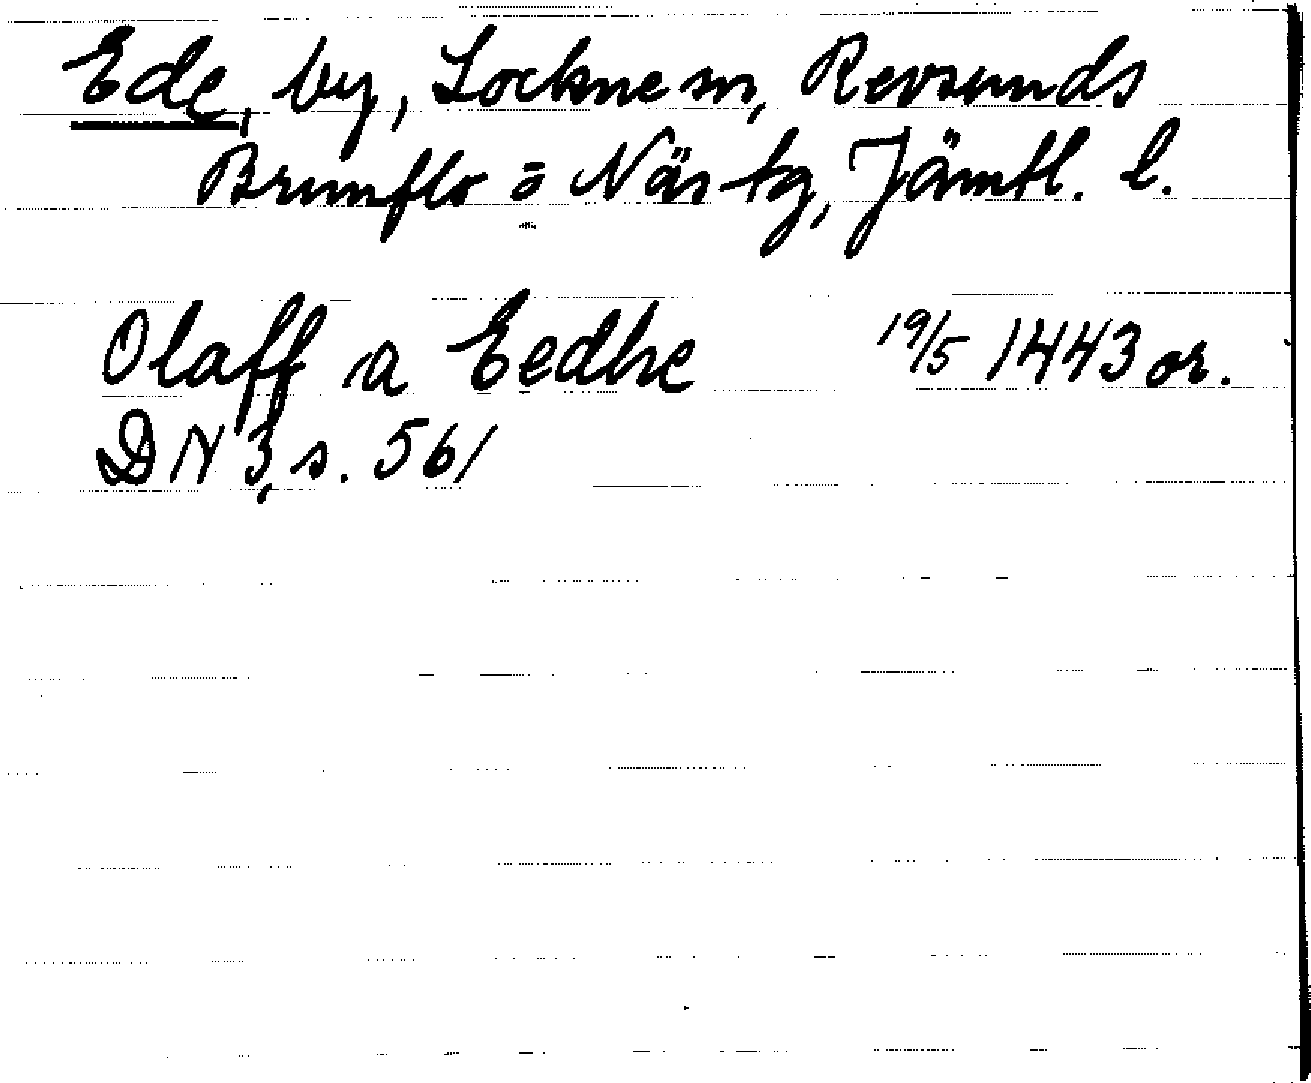 Ede, by, Lockne sn, Revsunds
Brunflo o Näs tg, Jämtl. l.
Olaff a Eedhe 19/5 1443 or.
DN 3, s. 561